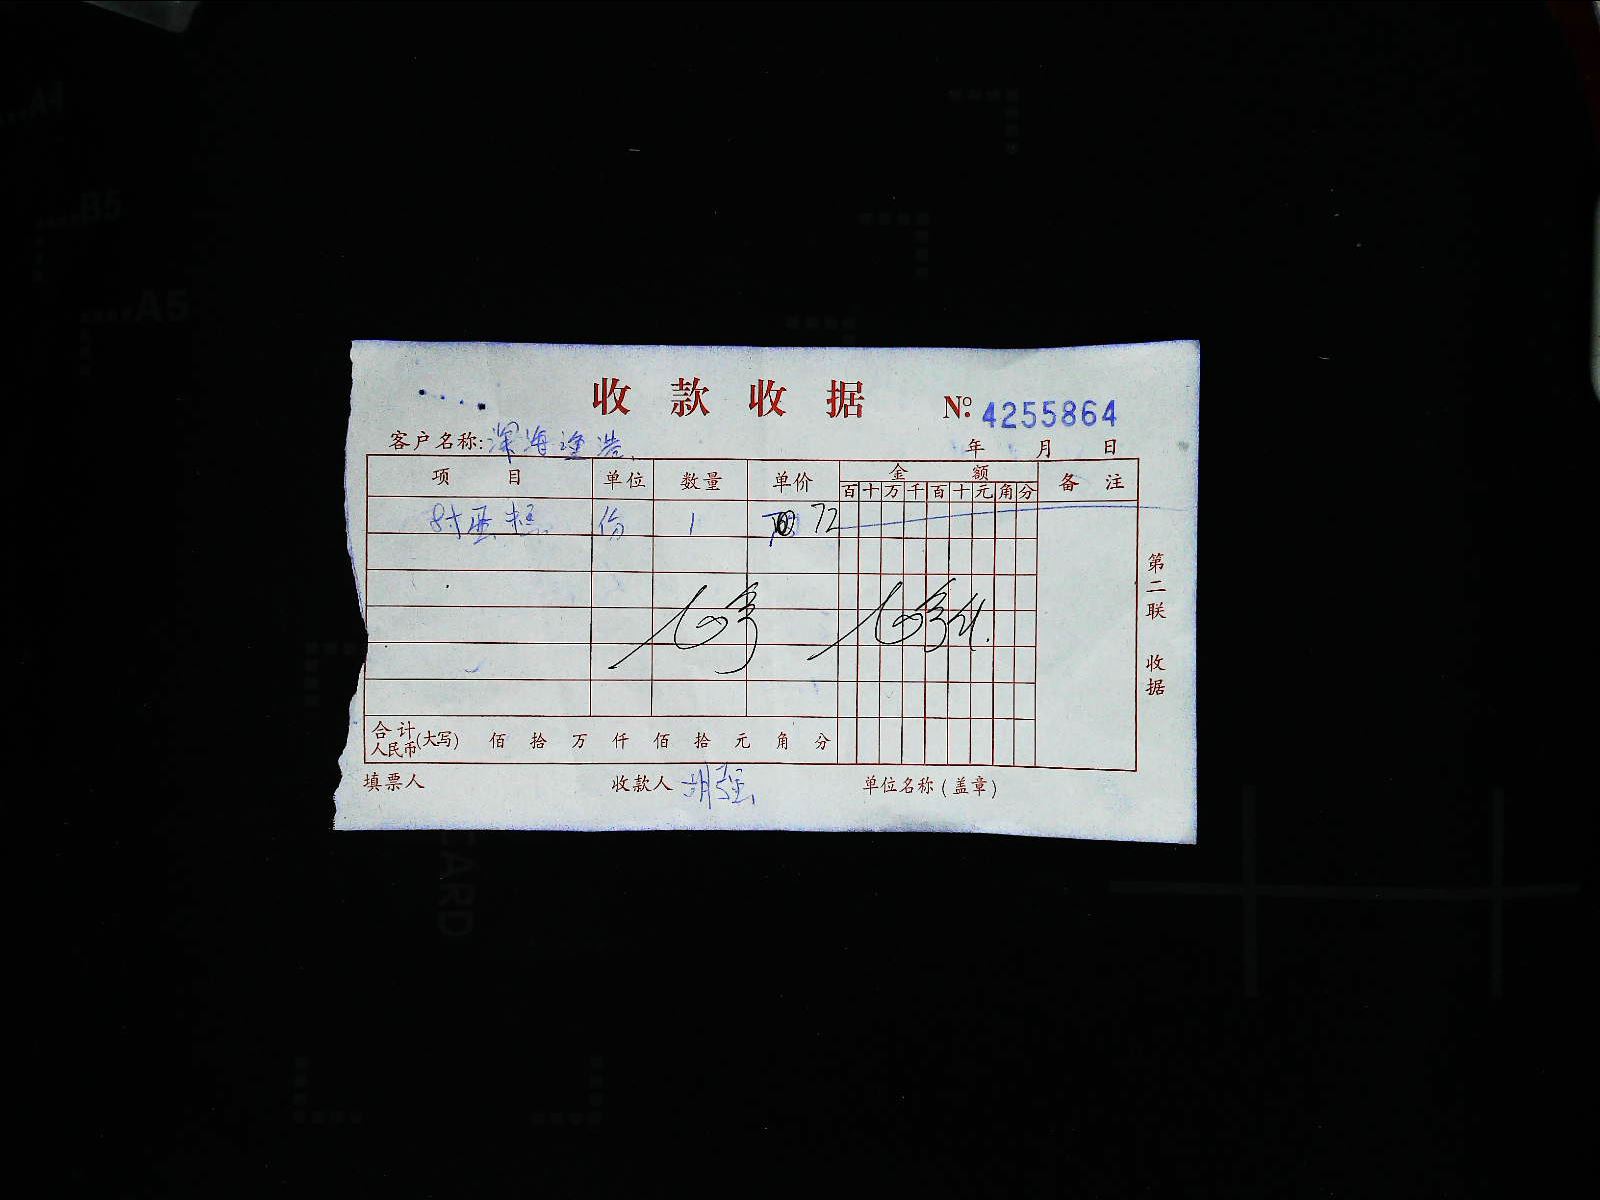 收款收据 № 4255864
客户名称:深海渔港 年 月 日
项目 单位 数量 单价 金额 备注
百十万千百十元角分
8寸蛋糕 份 1 72
第二联 收据
合计人民币(大写) 佰 拾 万 仟 佰 拾 元 角 分
填票人 收款人 胡强 单位名称(盖章)
A4
B5
A5
CARD